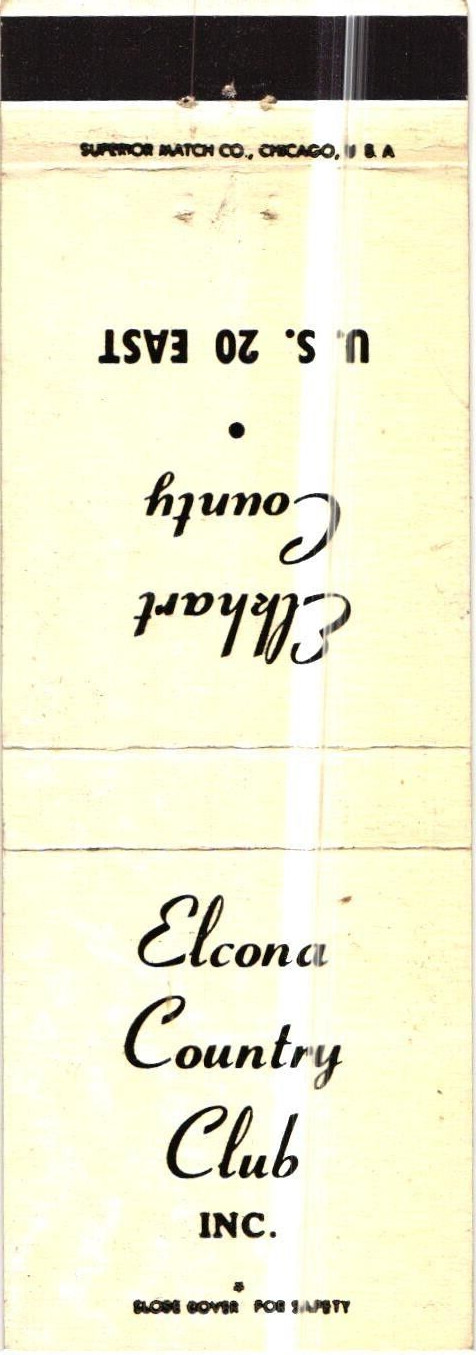 SUPERIOR MATCH CO., CHICAGO, U S A
Elkhart
County
•
U. S. 20 EAST
Elcona
Country
Club
INC.
CLOSE COVER FOR SAFETY